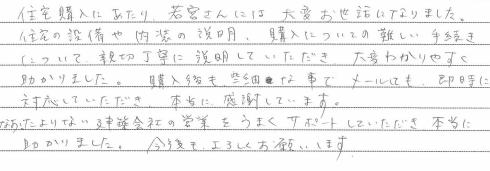 住宅購入にあたり 若宮さんには 大変お世話になりました。
住宅の設備や内装の説明、購入についての難しい手続き
について、親切丁寧に説明していただき 大変わかりやすく
助かりました。 購入後も些細な事でメールしても、即時に
対応していただき、本当に感謝しています。
たよりない建築会社の営業をうまくサポートしていただき本当に
助かりました。 今後も、よろしくお願いします